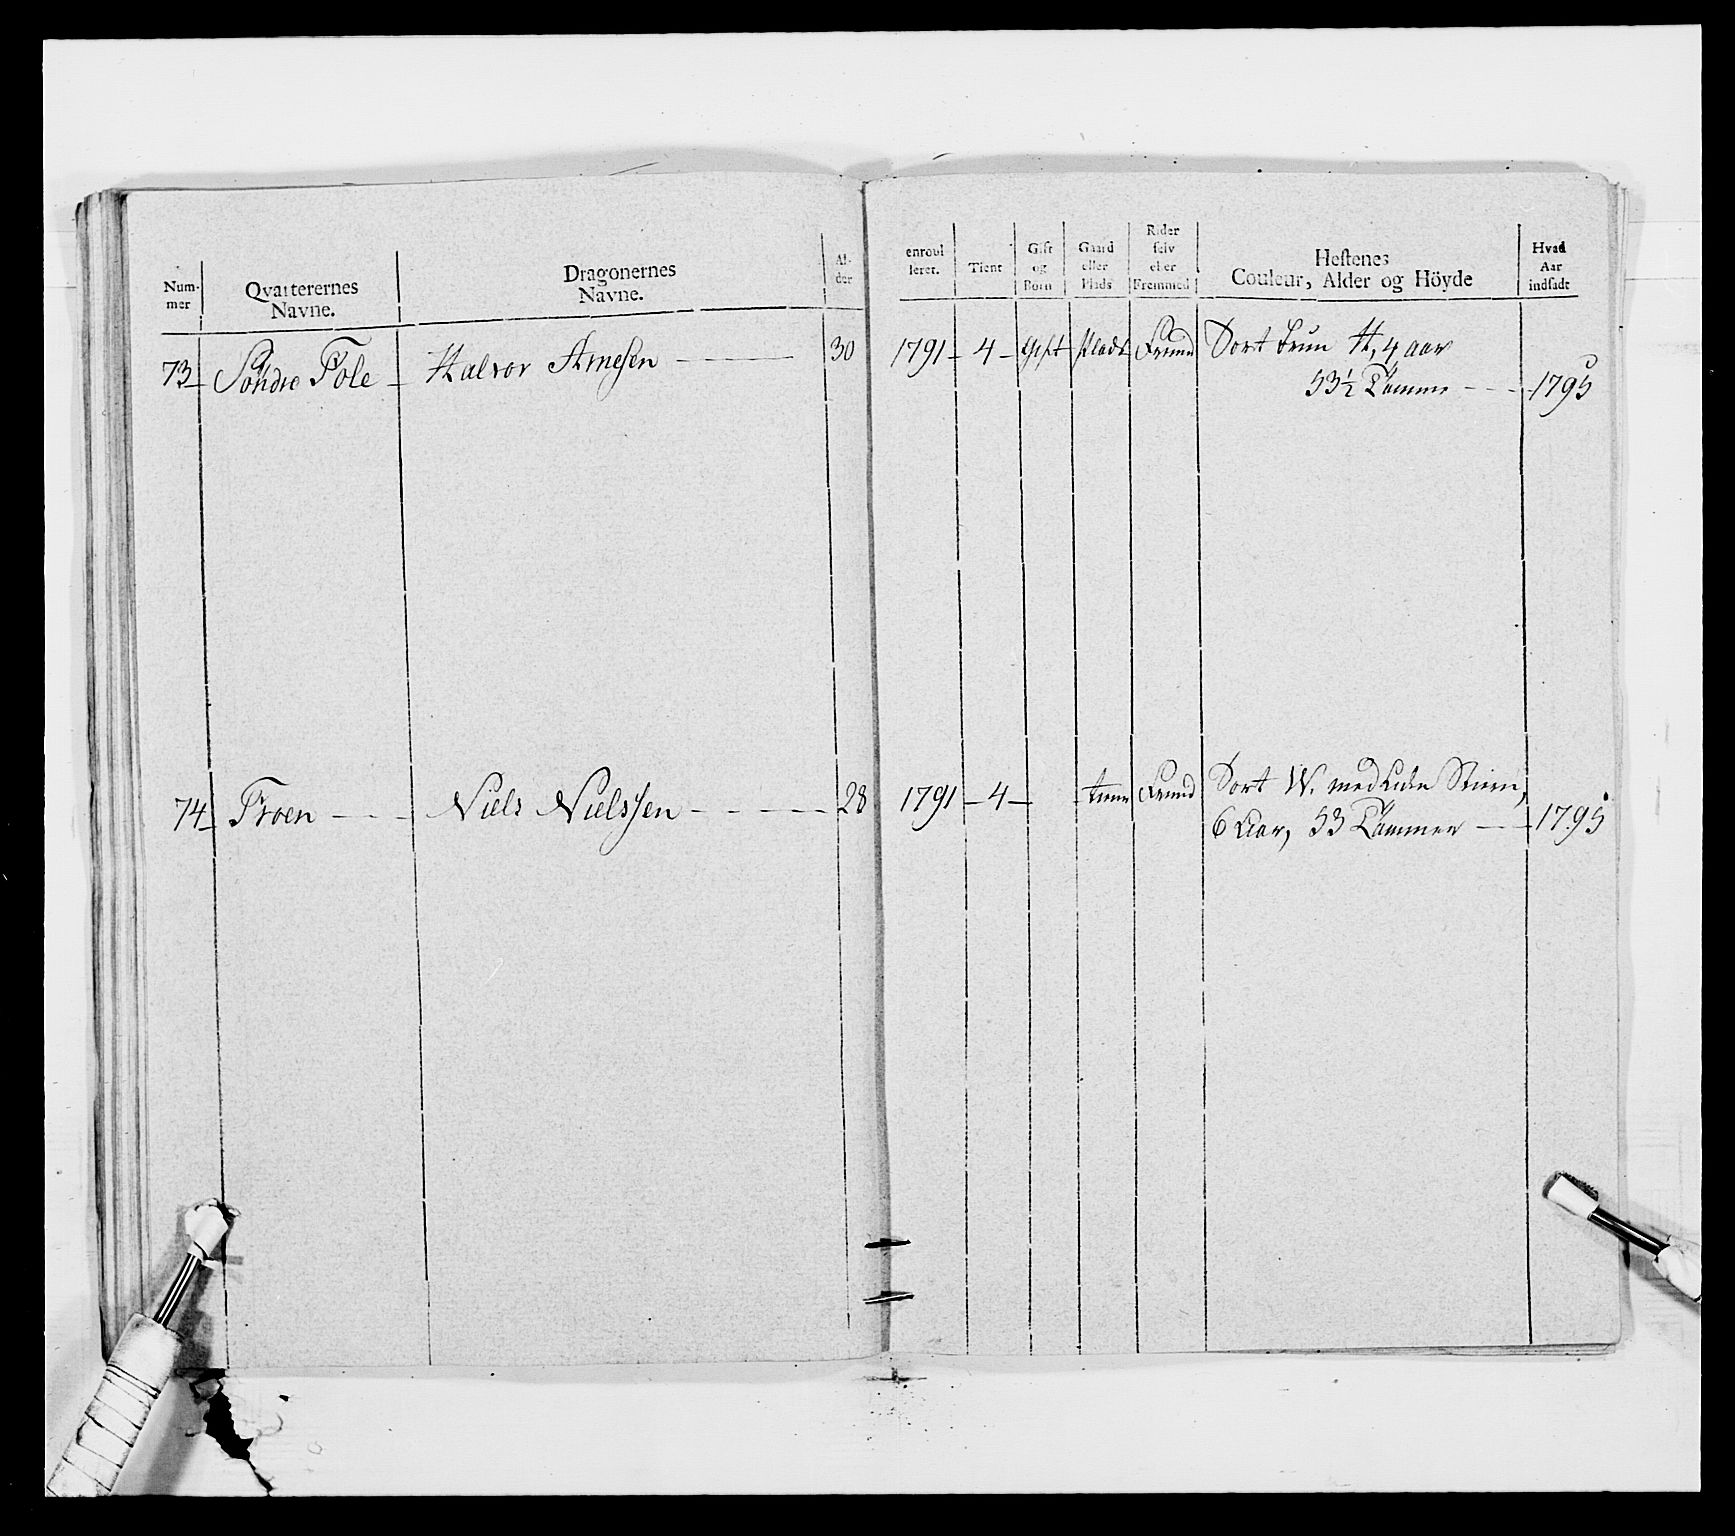 Num-
mer
Qvarterernes
Navne.
Dragonernes
Navne.
Al-
der
enroul
leret.
Tient
Gift
og
Born
Gaard
eller
Plads
Rider
selv
eller
Fremmed
Hestenes
Couleur, Alder og Höyde
Hvad
Aar
indsadt
73 Söndre Fole Halvor Arnesen 30 1791 4 Gift Plads Frmd Sort brun H, 4 aar
53½ Tommer 1795
74 Froen Niels Nielssen 28 1791 4 tiener Frmd Sort W. med Stiern,
6 Aar, 53 Tommer 1795